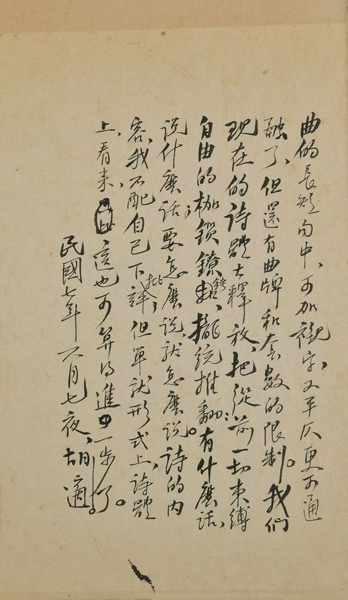 曲的長短句中,可加襯字,又平仄更可通
融了,但還有曲牌和套數的限制。我們
現在的詩體大釋放,把從前一切束縛
自由的枷鎖鐐銬,攏統推翻:有什麼話,
说什麼話;要怎麼說就怎麼說。詩的內
容,我不配自己下批評,但單就形式上詩體
上看來,這也可算得進一步了。
民國七年六月七夜,胡適。